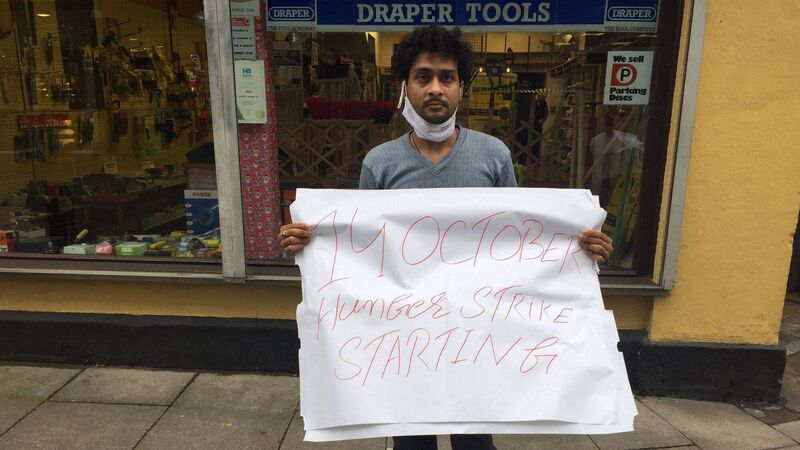 DRAPER
THE TOOL COMPANY
DRAPER TOOLS
DRAPER
THE TOOL COMPANY
We sell
P
Parking
Discs
14 OCTOBER
HUNGER STRIKE
STARTING